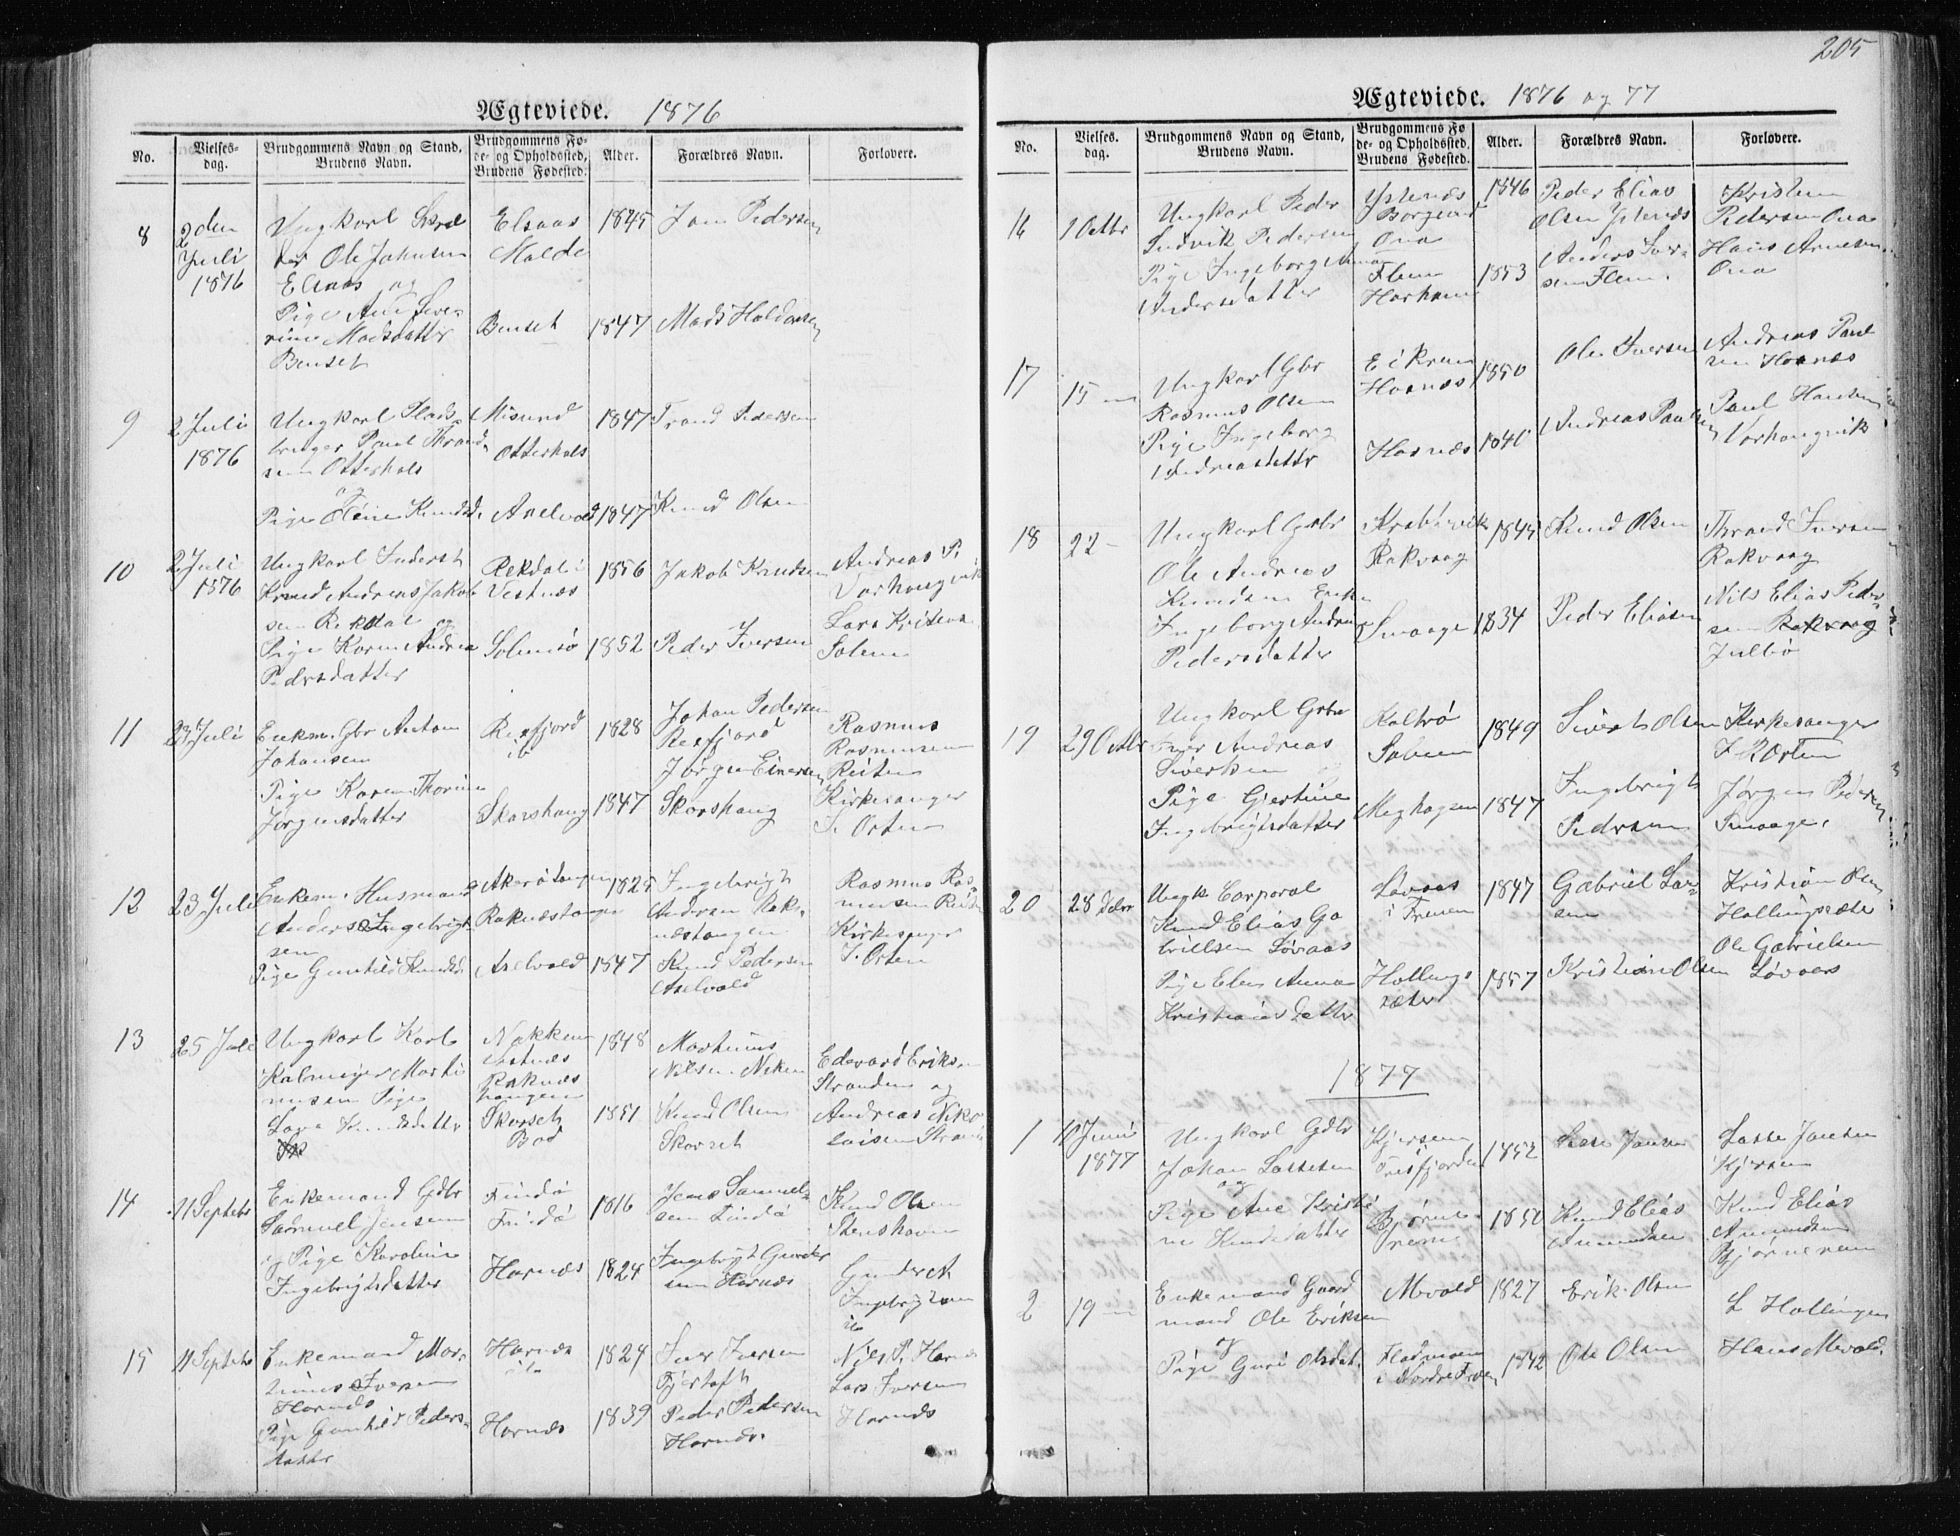 205
Ægteviede. 1876
No.
Vielses-
dag.
Brudgommens Navn og Stand,
Brudens Navn.
Brudgommens Fø-
de- og Opholdssted,
Brudens Fødested.
Alder.
Forældres Navn.
Forlovere.
8
2den
Juli
1876
Ungkarl
Ole Johnsen
Elsaas og
Pige Ane Seve-
rine Madsdatter
Benset
Elsaas
Molde
Benset
1845
1847
Pedersen
Mads Haldorsen
9
2 Juli
1876
Ungkarl Plads
bruger Paul Thrond
sen Otterhals
og
Pige Oline Knudsd.
Misund
Otterhals
Axelvold
1847
1847
Trond Pedersen
Knud Olsen
10
2 Juli
1876
Ungkarl Inderst
Knud Andreas Jakob
sen Rekdal og
Pige Karen Andrea
Pedersdatter
Rekdal i
Vestnæs
Solemsø
1856
1852
Jakob Knudsen
Peder Iversen
Andreas P.
Varhaugvik
Lars Kristens
Solem
11
23 Juli
Enkem. Gbr Anton
Johansen
Pige Karen Thorine
Jørgensdatter
Rexfjord
ib
Skarshaug
1828
1847
Johan Pedersen
Rexfjord
Jørgen Einersen
Skorshaug
Rasmus
Rasmussen
Reiten
Kirkesanger
I. Orten
12
23 Juli
Enkem. Husmand
Anders Ingebrigt
sen
Pige Gunhild Knudsd.
Akerøtangen
Raknæstangen
Axelvold
1825
1847
Ingebrigt
Andersen Rak-
næstangen
Knud Pedersen
Axelvold
Rasmus Ras
musen Reiten
Kirkesanger
I. Orten
13
25 Juli
Ungkarl Karl
Kalmeijer Marti
nusen Pige
Nakken
Vestnæs
Raknæs
haugen
Skorset
Bod
1848
1851
Martinus
Nilsen
Knud Olsen
Skorset
Edevard Eriks.
Stranden og
Andreas Niko
laisen
14
11 Septebr
Enkemand Gdbr
Samuel Jensen
og Pige Karoline
Ingebrigtsdatter
Findø
Findø
Harnæs
1816
1824
Jens Samuel-
sen Findø
Ingebrigt Gunder
sen Harnæs
Knud Olsen
Stenshavn
Gunder
Ingebrigtsen
ib
15
11 Septebr
Enkemand Mar-
tinus Iversen
Harnæs
Pige Gunhild Peders-
datter
Harnæs
ib
Harnæs
1824
1839
Iver Iversen
Fjertoft
Peder Pedersen
Harnæs.
Nils P. Harnæs
Lars Iversen
Harnæs
Ægteviede. 1876 og 77
No.
Vielses.
dag.
Brudgommens Navn og Stand,
Brudens Navn.
Brudgommens Fø
de- og Opholdssted,
Brudens Fødested.
Alder.
Forældres Navn.
Forlovere.
16
1 Octbr
Ungkarl Peder
Ludvik Pedersen
Pige Ingeborg Anna
Andersdatter
Ystenæs
Borgund
Ona
Flem
Harham
1846
1853
Peder Elias
Olsen Ystenæs
Anders Iver-
sen Flem.
Kristen
Pedersen Ona
Hans Arnesen
Ona
17
15 —
Ungkarl Gbr
Rasmus Olsen
Pige Ingeborg
Andreasdattr
Eikrem
Hoanæs
Hoanæs
1850
1840
Ole Iversen
Andreas Paulsen
Andreas Paul
sen Hoanæs
Paul Hansen
Varhaugvik
18
22 —
Ungkarl Gbr
Ole Andreas
Knudsen Enke
Ingeborg Andrea
Pedersdatter
Krabevik
Rakvaag
Smaage
1845
1834
Knud Olsen
Peder Eliasen
Thrond Iversen
Rakvaag
Nils Elias Peder-
sen Rakvaag
Julbø
19
29 Octbr
Ungkarl Gbr
Iver Andreas
Sivertsen
Pige Gjertine
Ingebrigtsdatter
Kaltrø
Solem
Meghagen
1849
1847
Sivert Olsen
Ingebrigt
Pedersen
Kirkesanger
I. Orten
Jørgen Pedersen
Smaage.
20
28 Debr
Ungk Corporal
Knud Elias Ga
brielsen Løvaas
Pige Elen Anna
Kristiansdatter
Løvaas
i Frænen
Hollings
sæter
1847
1857
Gabriel Lar-
sen
Kristian Olsen
Kristian Olsen
Hollingsæter
Ole Gabrielsen
Løvaas
1877
1
10 Juni
1877
Ungkarl Gdbr
Johan Lassesen
og
Pige Ane Kristi
ne Knudsdatter
Kjersem
Tresfjorden
Bjørne-
rem
1852
1850
Lasse Jansen
Knud Elias
Amundsen
Lasse Jansen
Kjersem
Knud Elias
Amundsen
Bjørnerem
2
19 —
Enkemand Gaard
mand Ole Eriksen
og
Pige Guri Olsdat.
Mevold
i Nordre Frænen
1827
1842
Erik Olsen
Ole Olsen
L Hollingen
Hans Mevold